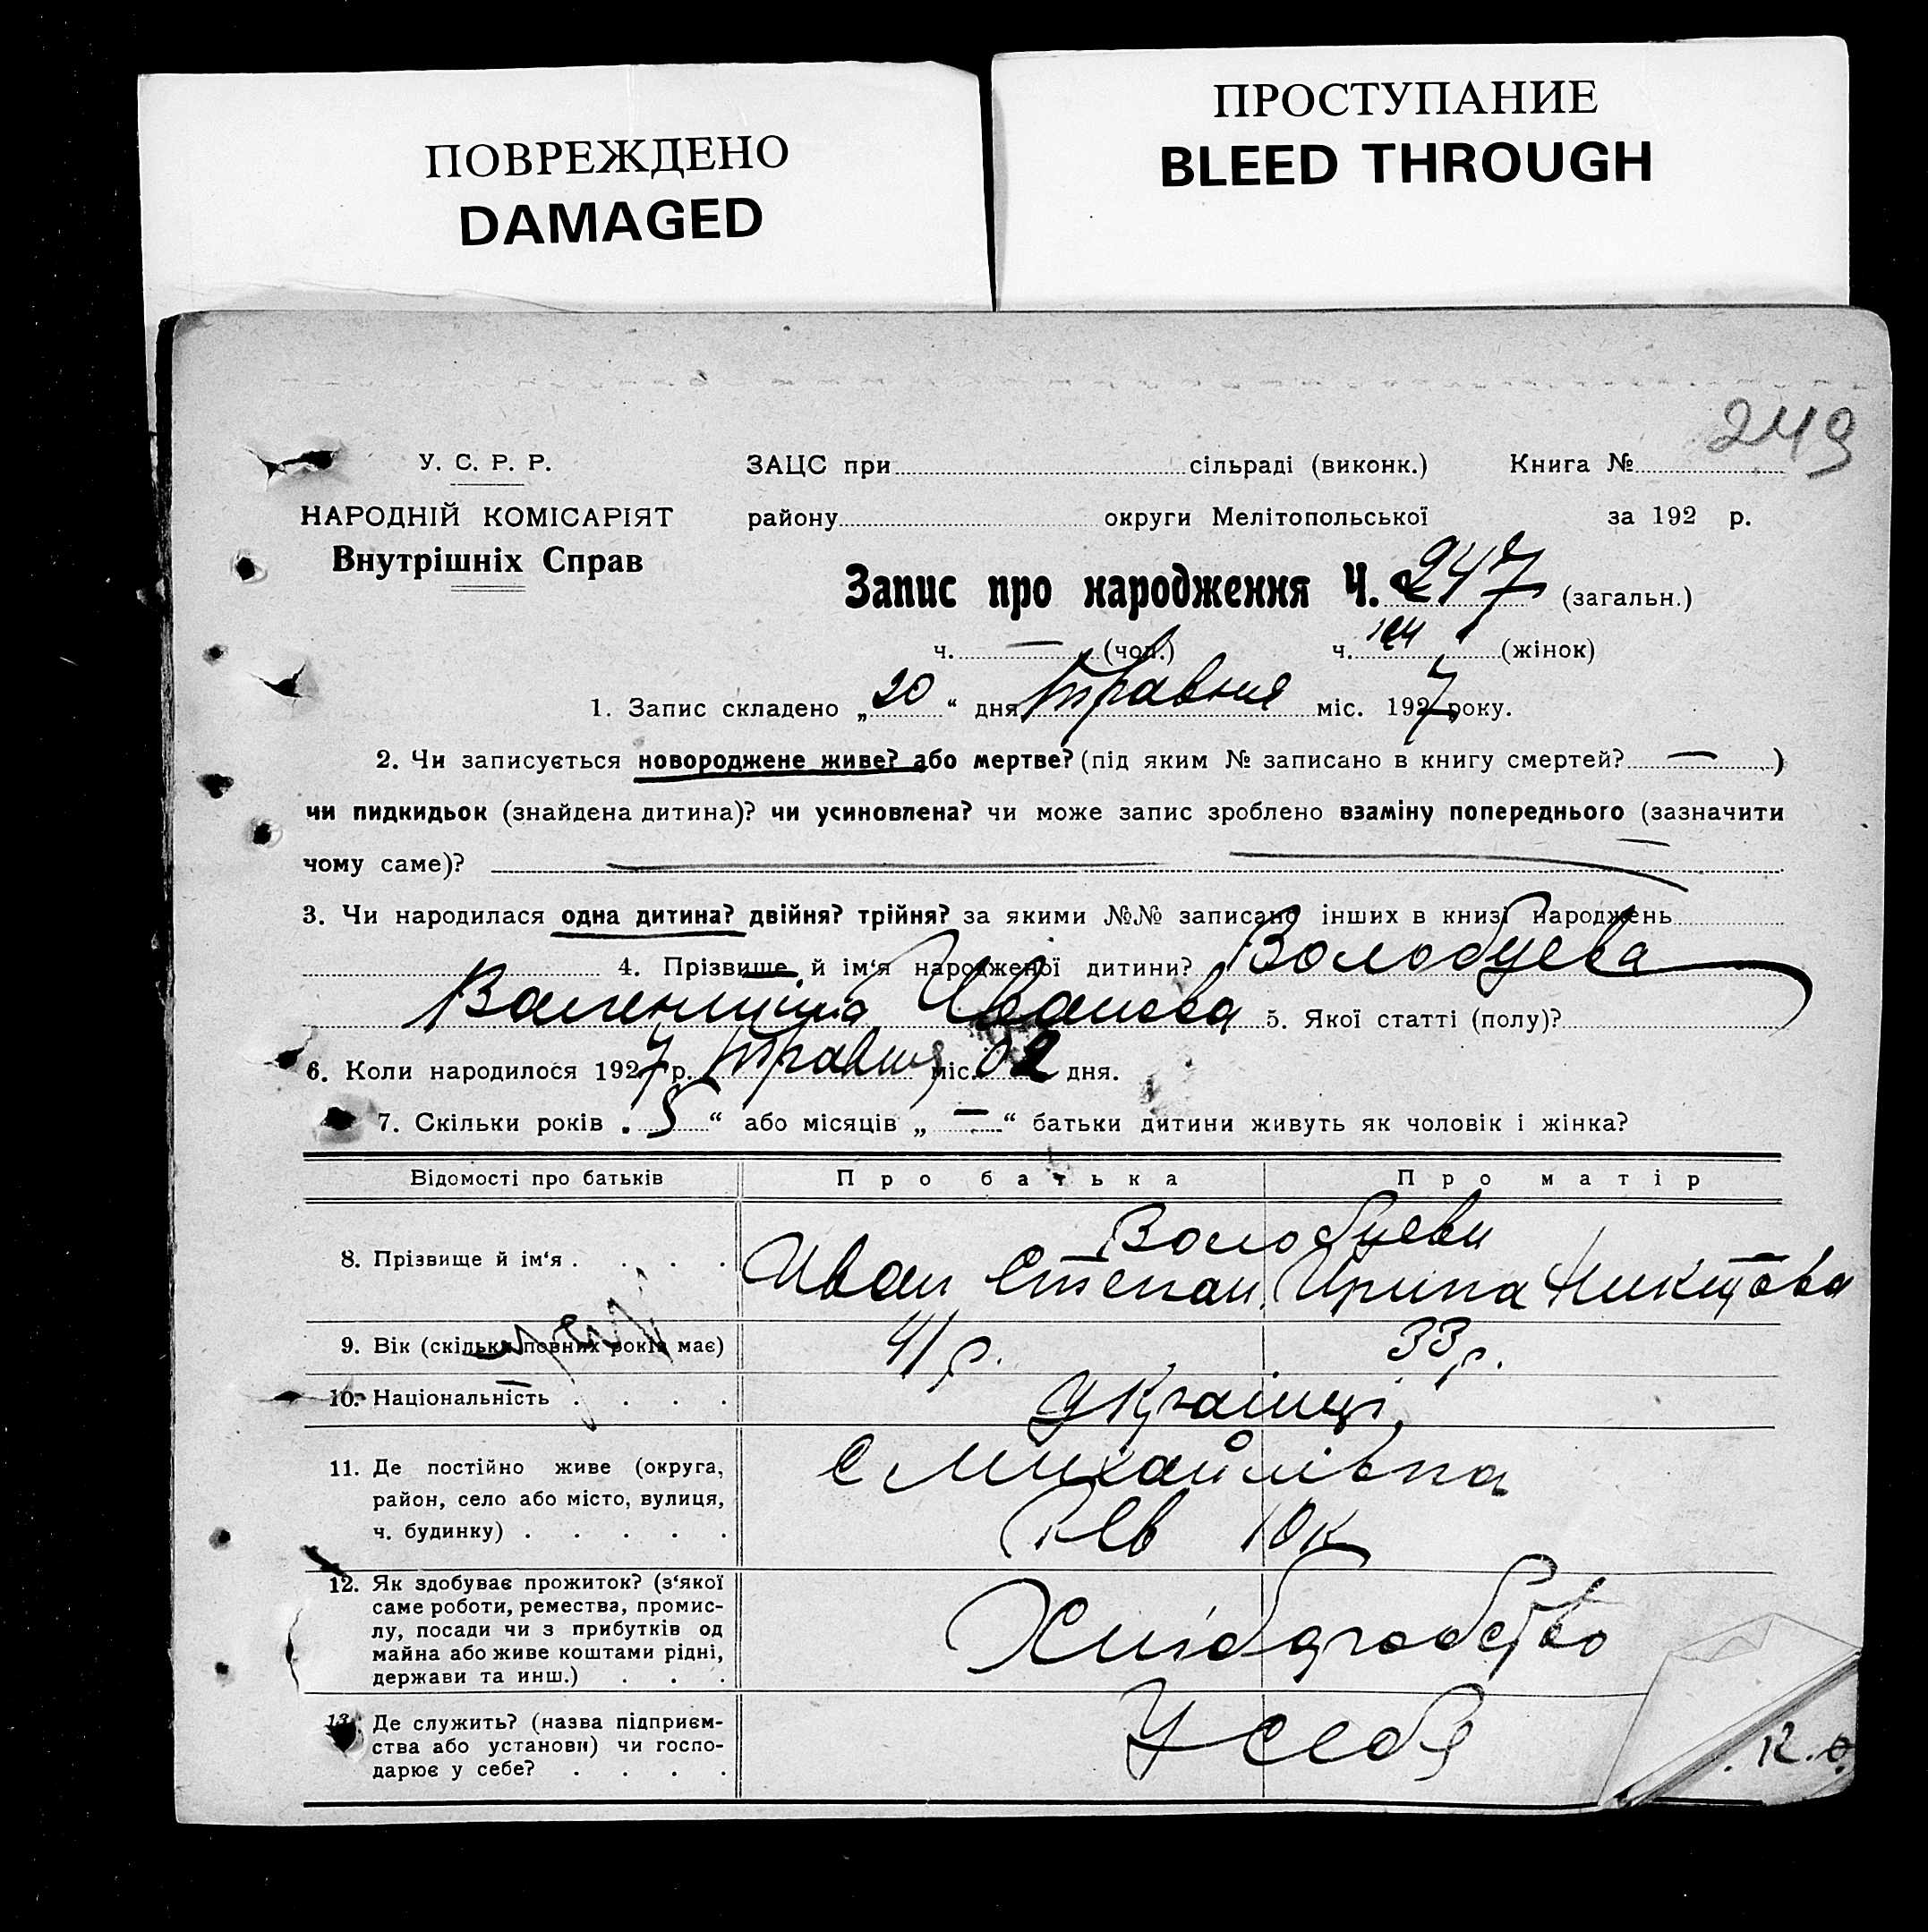 ПОВРЕЖДЕНО
DAMAGED
ПРОСТУПАНИЕ
BLEED THROUGH
249
У. С. Р. Р.
НАРОДНІЙ КОМІСАРІЯТ
Внутрішніх Справ
ЗАЦС при сільраді (виконк.) Книга №
району округи Мелітопольської за 192 р.
Запис про народження Ч. 247 (загальн.)
ч. — (чол.) ч. (жінок)
1. Запис складено „20“ дня Травня міс. 1927 року.
2. Чи записується новороджене живе? або мертве? (під яким № записано в книгу смертей? — )
чи пидкидьок (знайдена дитина)? чи усиновлена? чи може запис зроблено взаміну попереднього (зазначити
чому саме)?
3. Чи народилася одна дитина? двійня? трійня? за якими №№ записано інших в книзі народжень
4. Прізвище й ім‘я народженої дитини? Волобуева
Валентина Иванова 5. Якої статті (полу)?
6. Коли народилося 1927 р. Травня міс. 02 дня.
7. Скільки років „5“ або місяців „—“ батьки дитини живуть як чоловік і жінка?
Відомості про батьків Про батька Про матір
8. Прізвище й ім‘я . . . . . Волобуеви
Иван Степан. Ирина Никитова
9. Вік (скільки повних років має) 41 р. 33 р.
10. Національність . . . . Українці
11. Де постійно живе (округа,
район, село або місто, вулиця,
ч. будинку) . . . . .
с Михайлівка
12. Як здобуває прожиток? (з‘якої
саме роботи, ремества, промис-
лу, посади чи з прибутків од
майна або живе коштами рідні,
держави та инш.) . . .
Хліборобство
13. Де служить? (назва підприєм-
ства або установи) чи госпо-
дарює у себе? . . . .
У себя